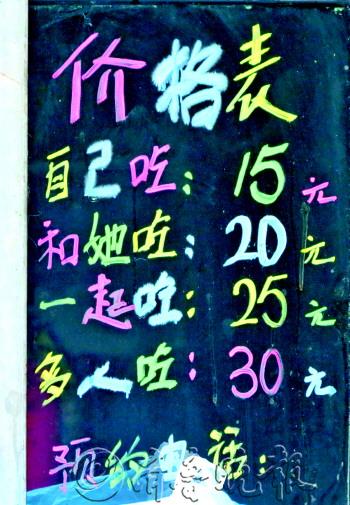 价格表
自己吃：15元
和她吃：20元
一起吃：25元
多人吃：30元
预约电话：
齐鲁晚报